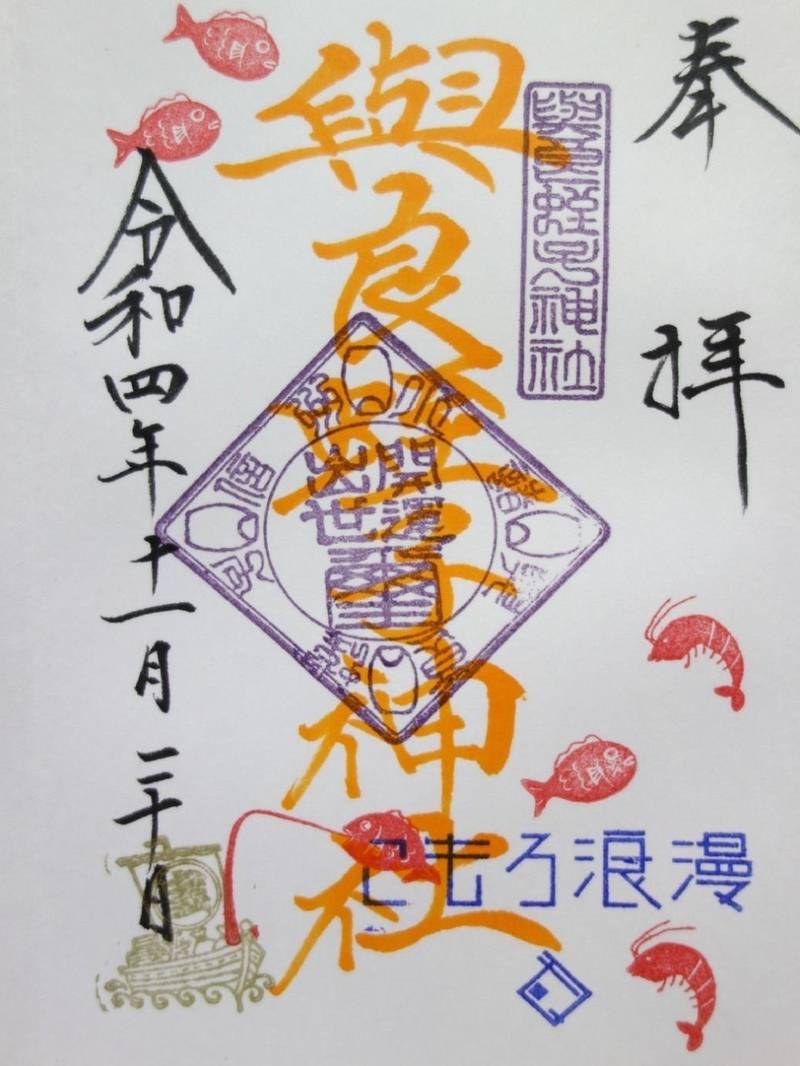 奉拝
與良蛭子神社
與良蛭子神社
開運
出世
令和四年十一月二十日
こもろ浪漫